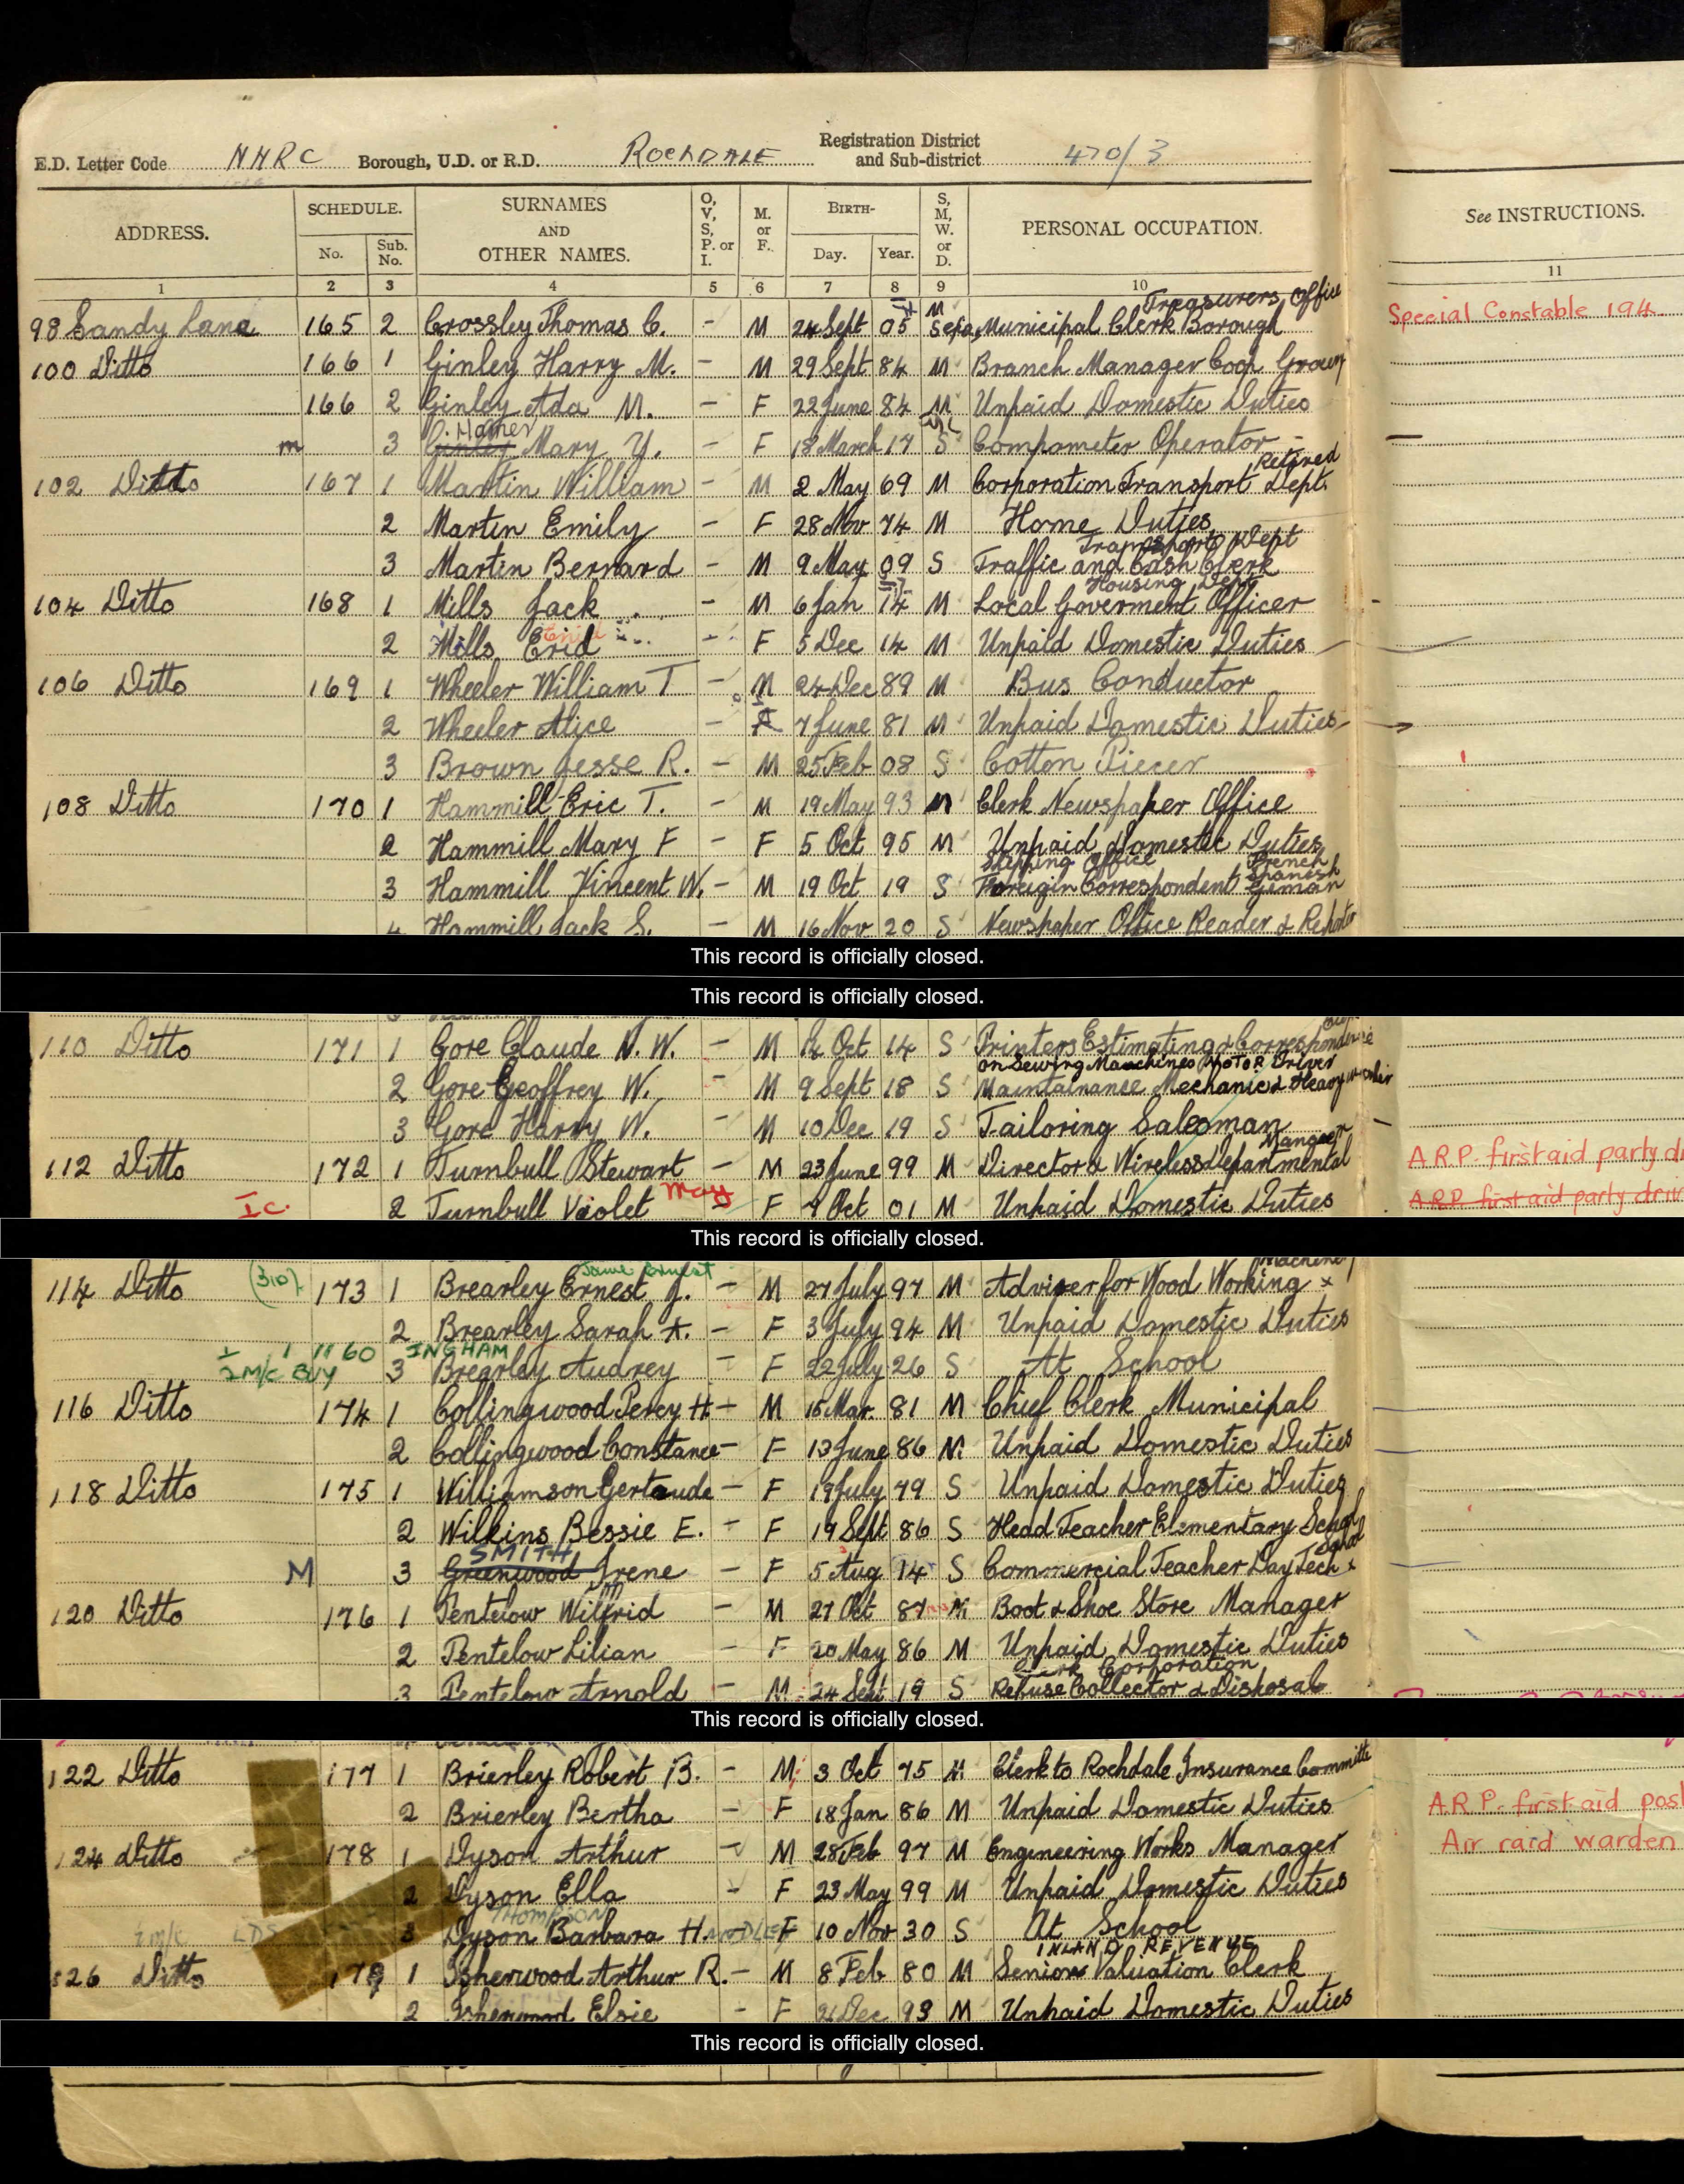 E.D. Letter Code NHRC Borough, U.D. or R.D. ROCHDALE Registration District and Sub-district 470/3
ADDRESS. SCHEDULE. No. Sub. No. SURNAMES AND OTHER NAMES. O, V, S, P. or I. M. or F. BIRTH- Day. Year. S, M, W. or D. PERSONAL OCCUPATION. See INSTRUCTIONS.
1 2 3 4 5 6 7 8 9 10 11
Treasurers Office
98 Sandy Lane 165 2 Crossley Thomas C. - M 24 Sept 05 M Municipal Clerk Borough Special Constable 194
100 Ditto 166 1 Ginley Harry M. - M 29 Sept 84 M Branch Manager Coop
166 2 Ginley Ada M. - F 22 June 84 M Unpaid Domestic Duties
m 3 Ginley Mary Y. - F 18 March 17 S Comptometer Operator
Retired
102 Ditto 167 1 Martin William - M 2 May 69 M Corporation Transport Dept.
2 Martin Emily - F 28 Nov 74 M Home Duties
Transport Dept
3 Martin Bernard - M 9 May 09 S Traffic and Cash Clerk
Housing Dept
104 Ditto 168 1 Mills Jack - M 6 Jan 14 M Local Goverment Officer
2 Mills Enid - F 5 Dec 14 M Unpaid Domestic Duties
106 Ditto 169 1 Wheeler William T - M 24 Dec 89 M Bus Conductor
2 Wheeler Alice - F 7 June 81 M Unpaid Domestic Duties
3 Brown Jesse R. - M 25 Feb 08 S Cotton Piecer
108 Ditto 170 1 Hammill Eric T. - M 19 May 93 M Clerk Newspaper Office
2 Hammill Mary F - F 5 Oct 95 M Unpaid Domestic Duties
Shipping Office French Spanish
3 Hammill Vincent W. - M 19 Oct 19 S Foreign Correspondent German
4 Hammill Jack S. - M 16 Nov 20 S Newspaper Office Reader & Reporter
This record is officially closed.
This record is officially closed.
110 Ditto 171 1 Gore Claude N. W. - M Oct 14 S Printers Estimating & Correspondence
on Sewing Machines MOTOR Driver
2 Gore Geoffrey W. - M 9 Sept 18 S Maintainance Mechanic & Heavy worker
3 Gore Harry W. - M 10 Dec 19 S Tailoring Salesman
Manager
112 Ditto 172 1 Turnbull Stewart - M 23 June 99 M Director & Wireless Departmental A.R.P. first aid party
I C. 2 Turnbull Violet May F Oct 01 M Unpaid Domestic Duties A.R.P. first aid party driv
This record is officially closed.
Machinery
114 Ditto (310) 173 1 Brearley Ernest J. - M 27 July 97 M Adviser for Wood Working x
2 Brearley Sarah A. - F 3 July 94 M Unpaid Domestic Duties
INGHAM
2 M/C BUY 3 Brearley Audrey - F 22 July 26 S At School
116 Ditto 174 1 Collingwood Percy H - M 15 Mar. 81 M Chief Clerk Municipal
2 Collingwood Constance - F 13 June 86 M Unpaid Domestic Duties
118 Ditto 175 1 Williamson Gertrude - F 19 July 79 S Unpaid Domestic Duties
2 Wilkins Bessie E. - F 19 Sept 86 S Head Teacher Elementary School
SMITH School
M 3 Greenwood Irene - F 5 Aug 14 S Commercial Teacher Day Tech x
120 Ditto 176 1 Pentelow Wilfrid - M 27 Oct 87 M Boot & Shoe Store Manager
2 Pentelow Lilian - F 20 May 86 M Unpaid Domestic Duties
Clerk Corporation
3 Pentelow Arnold - M 24 Sept 19 S Refuse Collector & Disposal
This record is officially closed.
122 Ditto 177 1 Brierley Robert B. - M 3 Oct 75 M Clerk to Rochdale Insurance Committe
2 Brierley Bertha - F 18 Jan 86 M Unpaid Domestic Duties A.R.P. first aid post
124 Ditto 178 1 Dyson Arthur - M 28 Feb 97 M Engineering Works Manager Air raid warden
2 Dyson Ella - F 23 May 99 M Unpaid Domestic Duties
THOMPSON
3 Dyson Barbara H - F 10 Nov 30 S At School
INLAND REVENUE
126 Ditto 179 1 Isherwood Arthur R. - M 8 Feb 80 M Senior Valuation Clerk
2 Isherwood Elsie - F Dec 93 M Unpaid Domestic Duties
This record is officially closed.